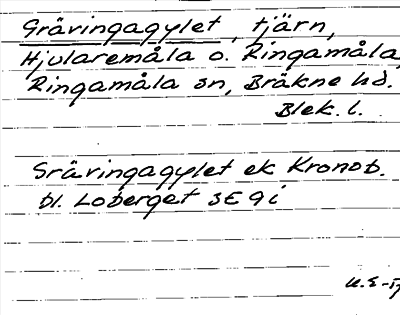 Gräringagylet, tjärn,
Hjularemåla o. Ringamåla,
Ringamåla sn, Bräkne hd.
Blek. l.
Sräringagylet ek Kronob.
bl. Loberget 3E 9i